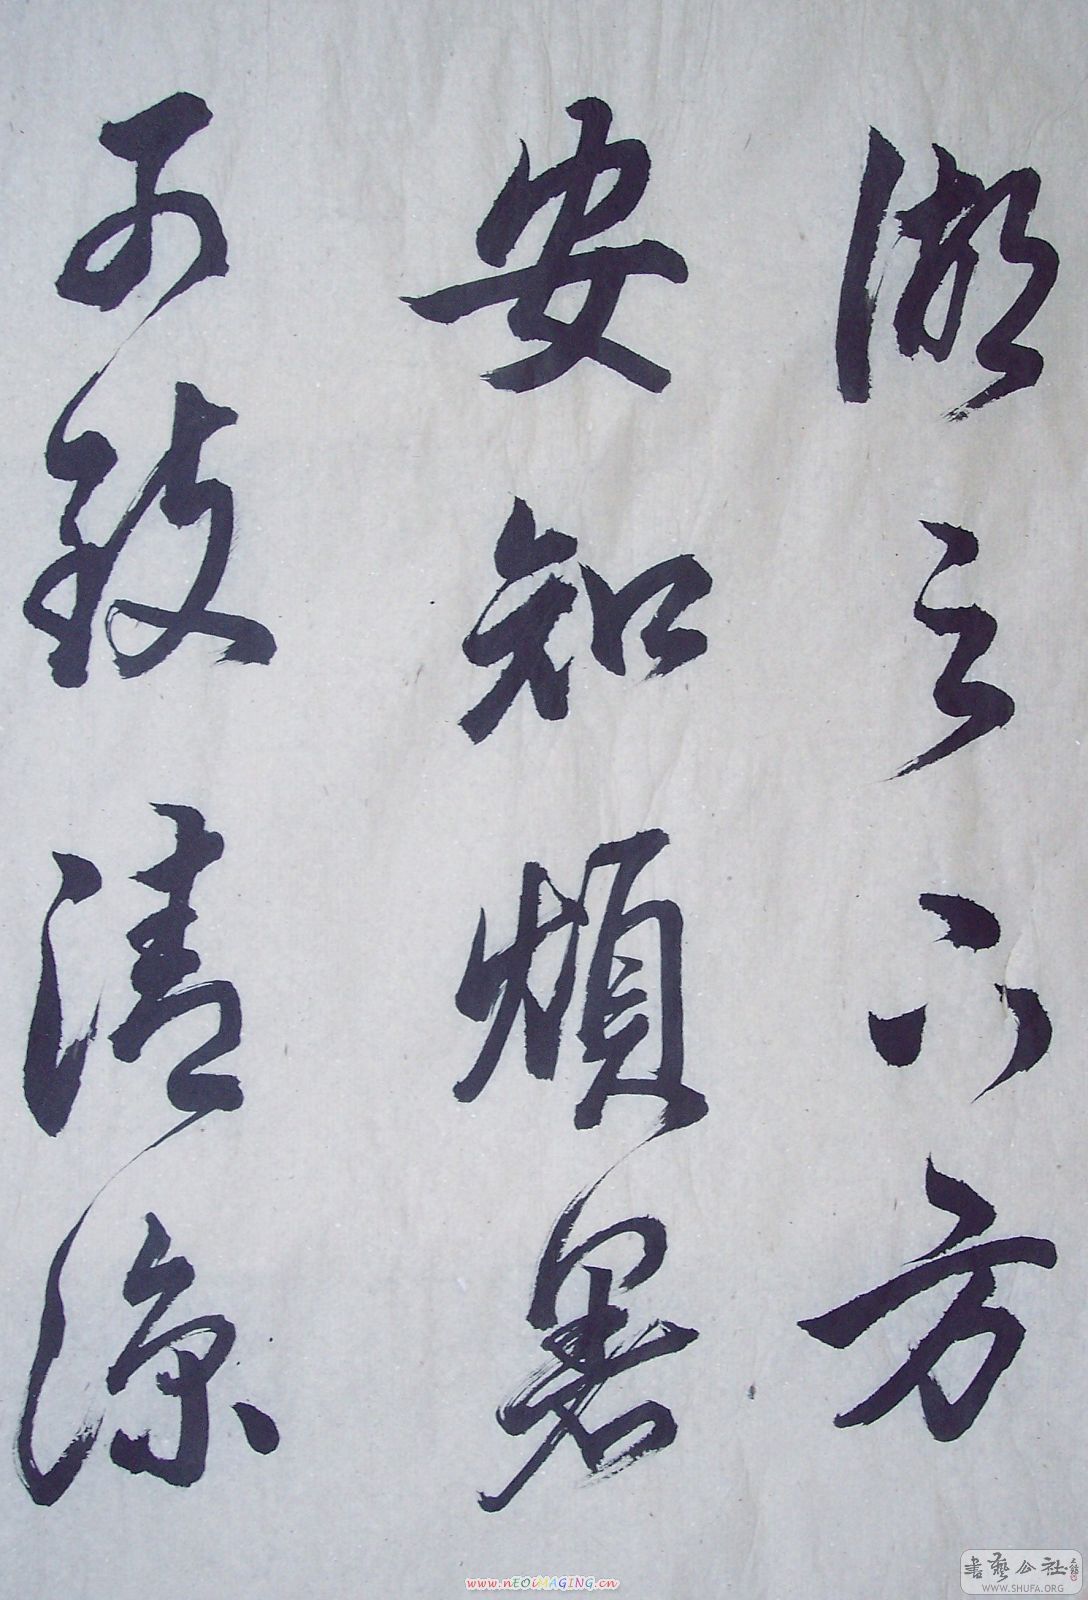 湖之下方
安知煩暑
可致清涼
書藝公社
WWW.SHUFA.ORG
www.nEOiMAGING.cn